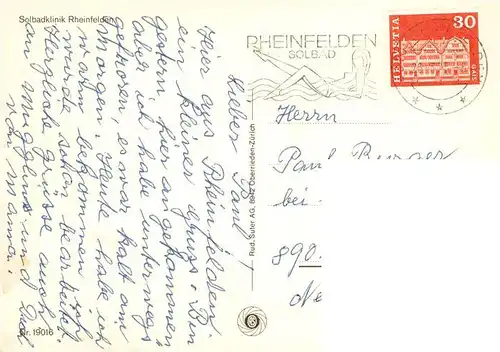 Solbadklinik Rheinfelden
Lieber Paul
Hier aus Rheinfelden
ein kleiner Gruss. Bin
gestern hier angekommen
aber ich habe unterwegs
gefroren, es war kalt am
Morgen. Heute habe ich
warm bekommen, ich
wurde schon bearbeitet.
Herzliche Grüsse auch
an und Dich
von Mama.
Nr. 19016
Rud. Suter AG, 8942 Oberrieden-Zürich
RHEINFELDEN
SOLBAD
HELVETIA
30
Herrn
Paul
bei
890